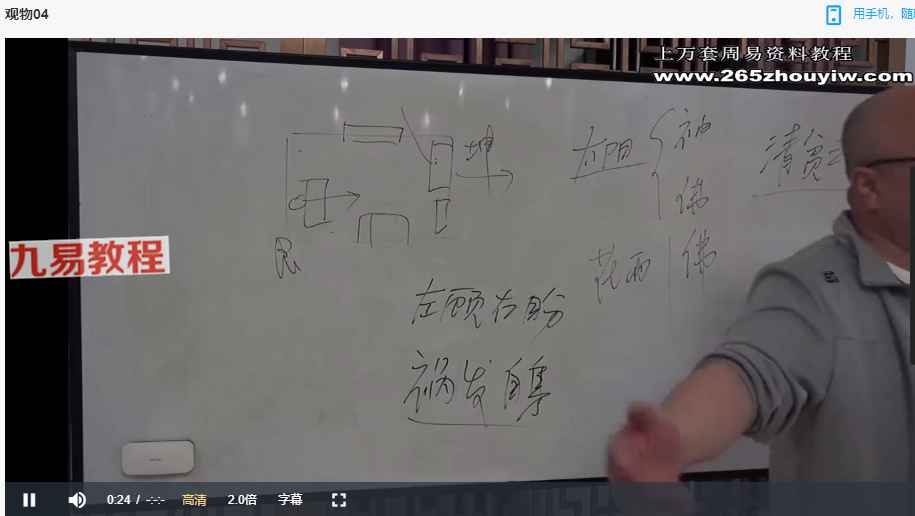 观物04
用手机，随
上万套周易资料教程
www.265zhouyiw.com
九易教程
坤
艮
神
佛
清贫
佛
左顾右盼
祸发自
0:24 / -:-:-
高清
2.0倍
字幕